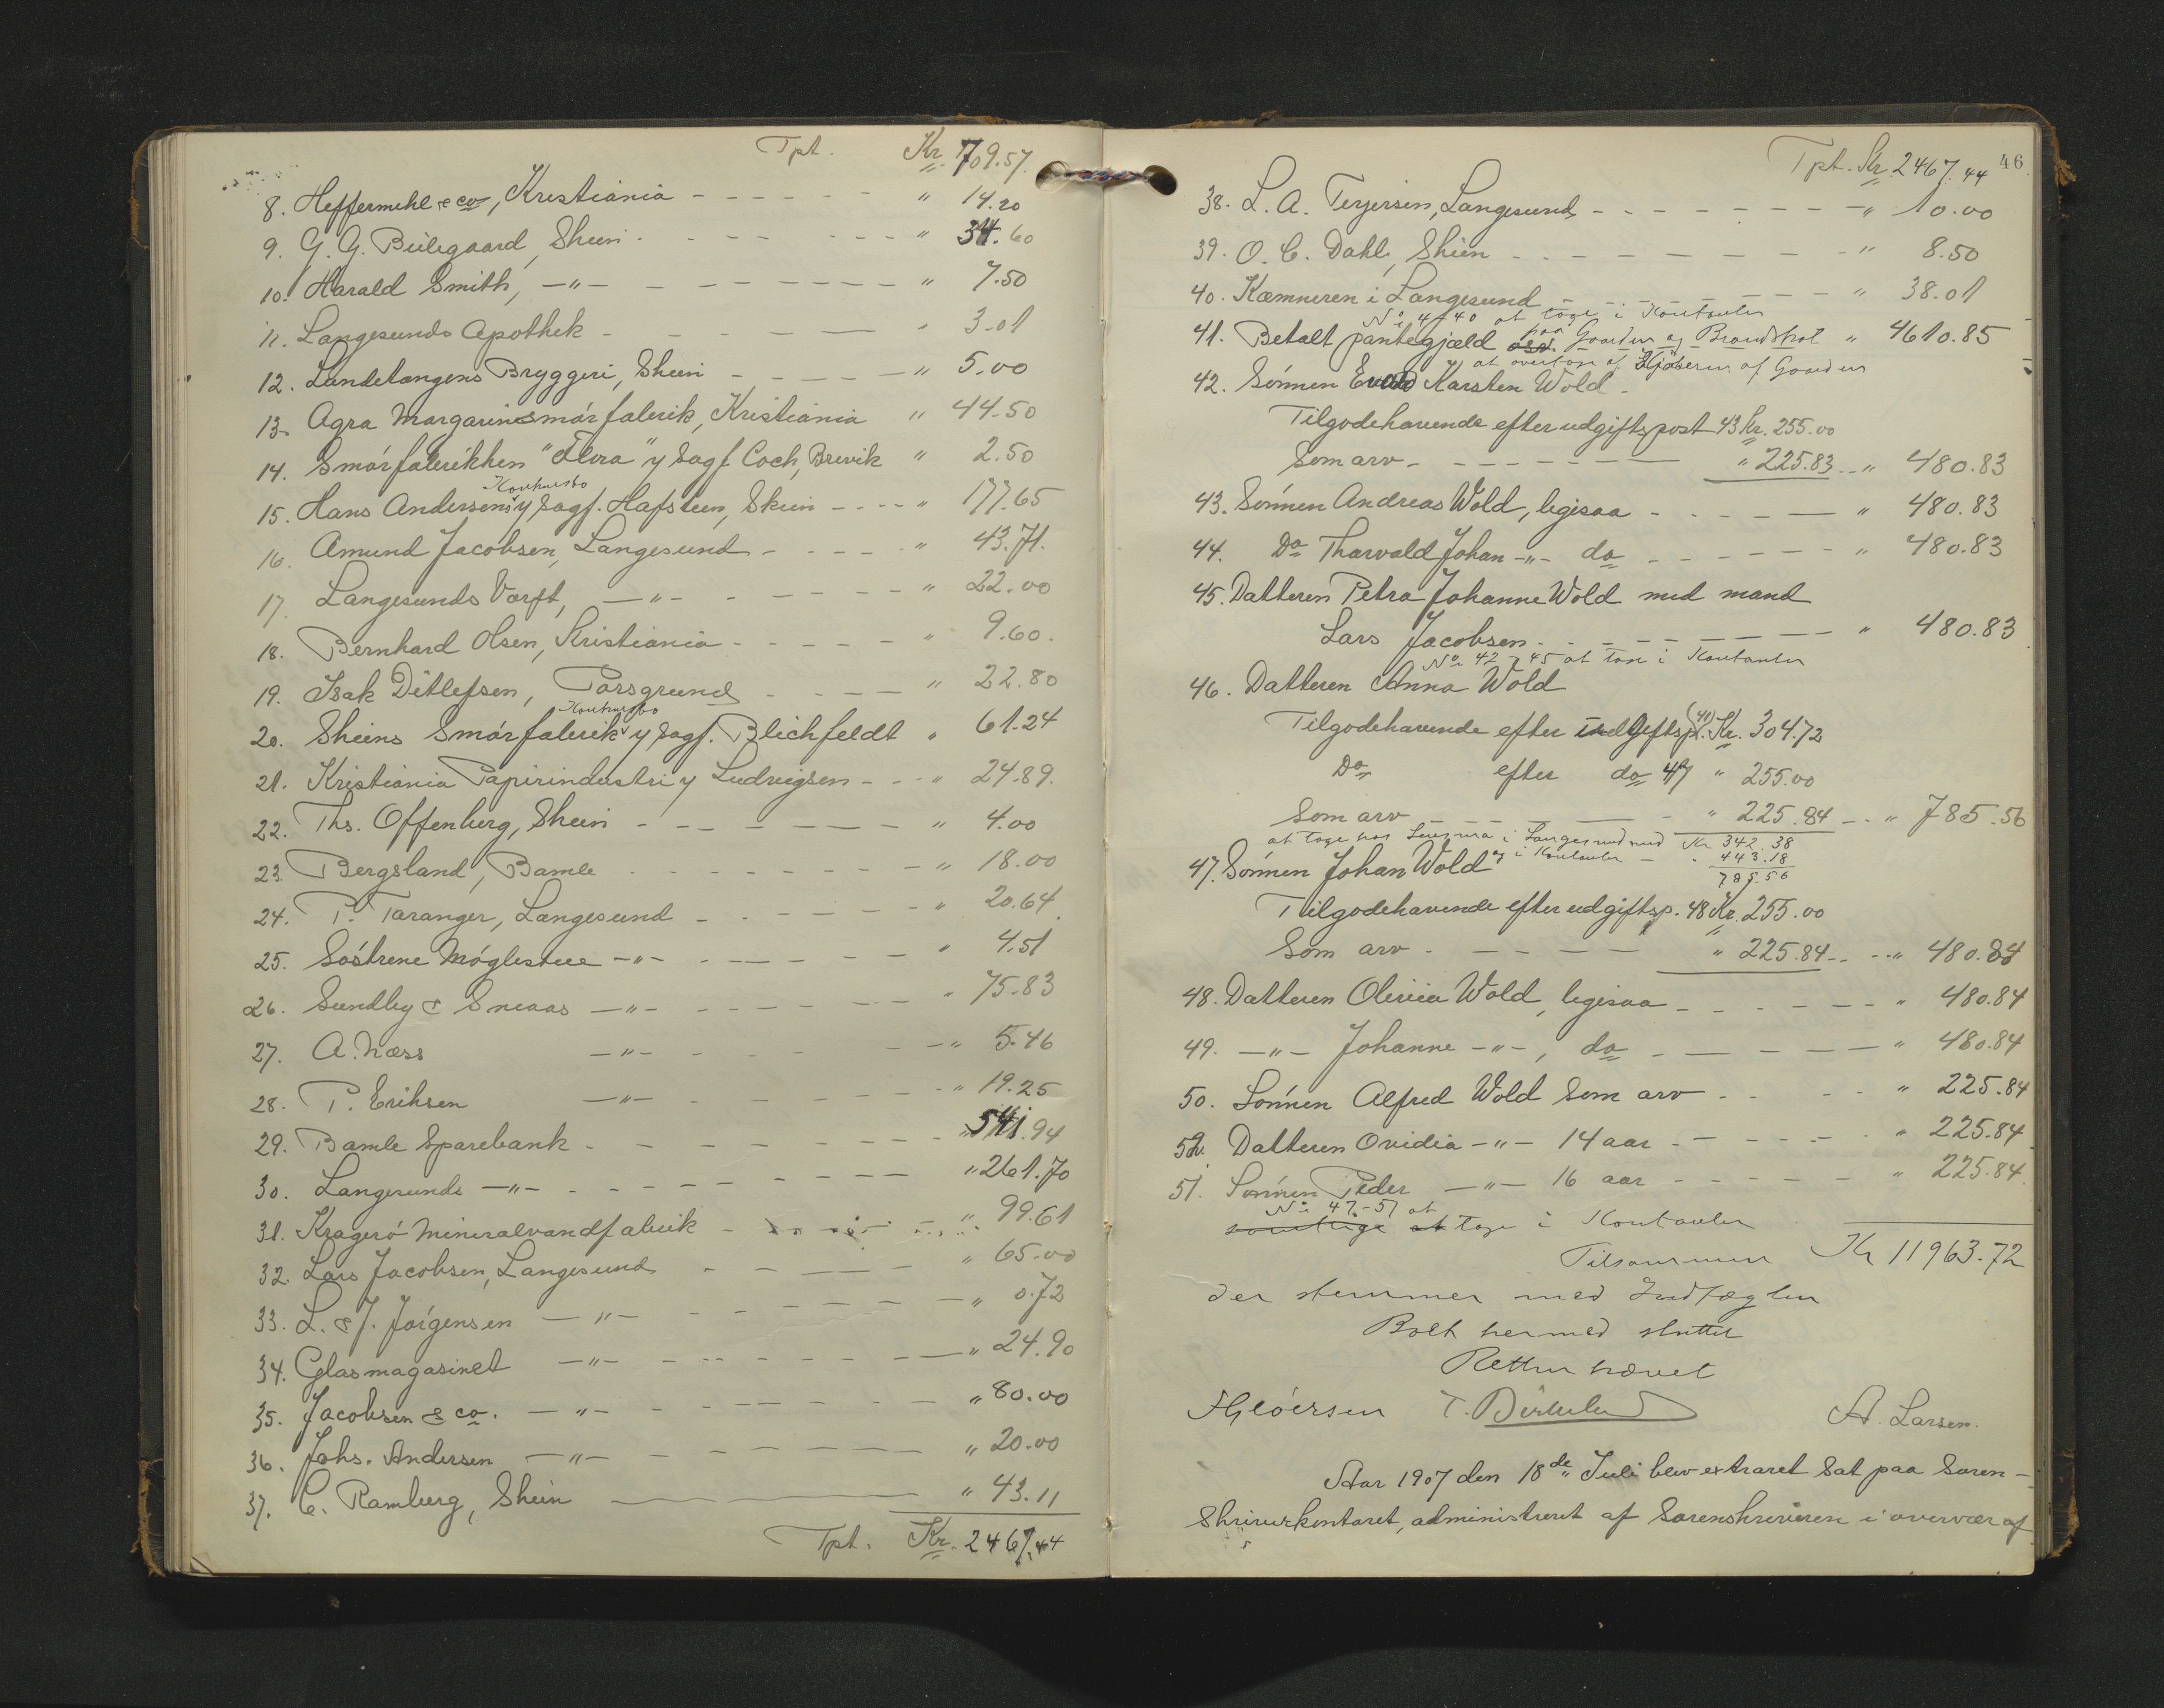 Tpt. Kr. 709.57
8. Heffermehl & co, Kristiania - - - - - " 14.20
9. G. G. Bülegaard, Skien - - - - - - " 34.60
10. Harald Smith, -"- - - - - - - " 7.50
11. Langesunds Apothek - - - - - - " 3.01
12. Lundetangens Bryggeri, Skien - - - - - " 5.00
13. Agra Margarinsmørfabrik, Kristiania " 44.50
14. Smørfabrikken "Flora" v/ Sagf. Coch, Brevik " 2.50
Konkursbo
15. Hans Andersens v/ Sagf. Hafsteen, Skien - - - - " 177.65
16. Amund Jacobsen, Langesund - - - - - " 43.71.
17. Langesunds Værft, -"- - - - - - " 22.00
18. Bernhard Olsen, Kristiania - - - - - " 9.60.
19. Isak Ditlefsen, Porsgrund - - - - " 22.80
Konkursbo
20. Skiens Smørfabrik v/ Sagf. Blichfeldt " 61.24
21. Kristiania Papirindustri v/ Ludvigsen - - - " 24.89.
22. Ths. Offenberg, Skien - - - - - - " 4.00
23. Bergsland, Bamle - - - - - - - " 18.00
24. P. Taranger, Langesund - - - - - " 20.64.
25. Søstrene Møglestue -"- - - - - - " 4.51
26. Sundby & Sneaas -"- - - - - - " 75.83
27. A. Næss -"- - - - - " 5.46
28. P. Eriksen -"- - - - - - - " 19.25
29. Bamle Sparebank - - - - - - - " 541.94
30. Langesunds -"- - - - - - - - " 261.70
31. Kragerø Mineralvandfabrik - - - - - - " 99.61
32. Lars Jacobsen, Langesund - - - - - " 65.00
33. L. & J. Jørgensen -"- - - - - - - " 0.72
34. Glasmagasinet -"- - - - - - - " 24.90
35. Jacobsen & co. -"- - - - - - - " 80.00
36. Johs. Andersen -"- - - - - - - " 20.00
37. C. Ramberg, Skien " 43.11
Tpt. Kr. 2467.44
46
Tpt. Kr. 2467.44
38. L. A. Terjersen, Langesund - - - - - - - - " 10.00
39. O. C. Dahl, Skien - - - - - - - - " 8.50
40. Kæmneren i Langesund - - - - - - " 38.01
No 4-40 at tage i Kontanter
41. Betalt pantegjæld paa Gaarden og Brandskat " 4610.85
at overtage af Kjøberen af Gaarden
42. Sønnen Evald Karsten Wold -
Tilgodehavende efter udgiftspost 43 Kr. 255.00
Som arv - - - - - - - " 225.83 - - " 480.83
43. Sønnen Andreas Wold, ligesaa - - - - - " 480.83
44. Do Tharvald Johan -"- do - - - - - - " 480.83
45. Datteren Petra Johanne Wold med mand
Lars Jacobsen - - - - - - - - " 480.83
No 42 - 45 at tage i Kontanter
46. Datteren Anna Wold
Tilgodehavende efter indtgiftsp. (41) Kr. 304.72
Do efter do 47 " 255.00
Som arv - - - - - " 225.84 - - " 785.56
at tage hos i Langesund med Kr 342.38
og i Kontanter - " 443.18
785.56
47. Sønnen Johan Wold
Tilgodehavende efter udgiftsp. 48 Kr. 255.00
Som arv - - - - - " 225.84 - - - " 480.84
48. Datteren Olivia Wold, ligesaa - - - - - - " 480.84
49. -"- Johanne -"-, do - - - - - - " 480.84
50. Sønnen Alfred Wold Som arv - - - - " 225.84
52. Datteren Ovidia -"- 14 aar - - - - - - " 225.84
51. Sønnen Peder -"- 16 aar - - - - - - " 225.84
No 47 - 51 at
samtlige at tage i Kontanter
Tilsammen Kr 11963.72
der stemmer med Indtægten
Boet hermed sluttet
Retten hævet
T. Birkeland A. Larsen.
Aar 1907 den 18de Juli blev extraret Sat paa Soren-
Skriverkontoret, administreret af Sorenskriveren i overvær af